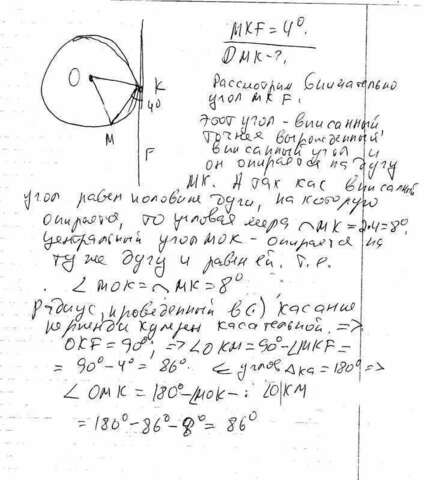 MKF = 4°.
OMK - ?.
O
K
40
M
F
Рассмотрим внимательно
угол MKF.
Этот угол - вписанный
точнее вырожденный
вписанный угол и
он опирается на дугу
MK. А так как вписанный
угол равен половине дуги, на которую
опирается, то угловая мера ◠MK = 2·4 = 8°.
Центральный угол MOK - опирается на
ту же дугу и равен ей. Т.е.
∠MOK = ◠MK = 8°
Радиус, проведенный в (·) касание
перпенди касательной. =>
OKF = 90°, => ∠OKM = 90° - ∠MKF =
= 90° - 4° = 86°. углов Δка = 180° =>
∠OMK = 180° - ∠MOK - ∠OKM
= 180° - 86° - 8° = 86°